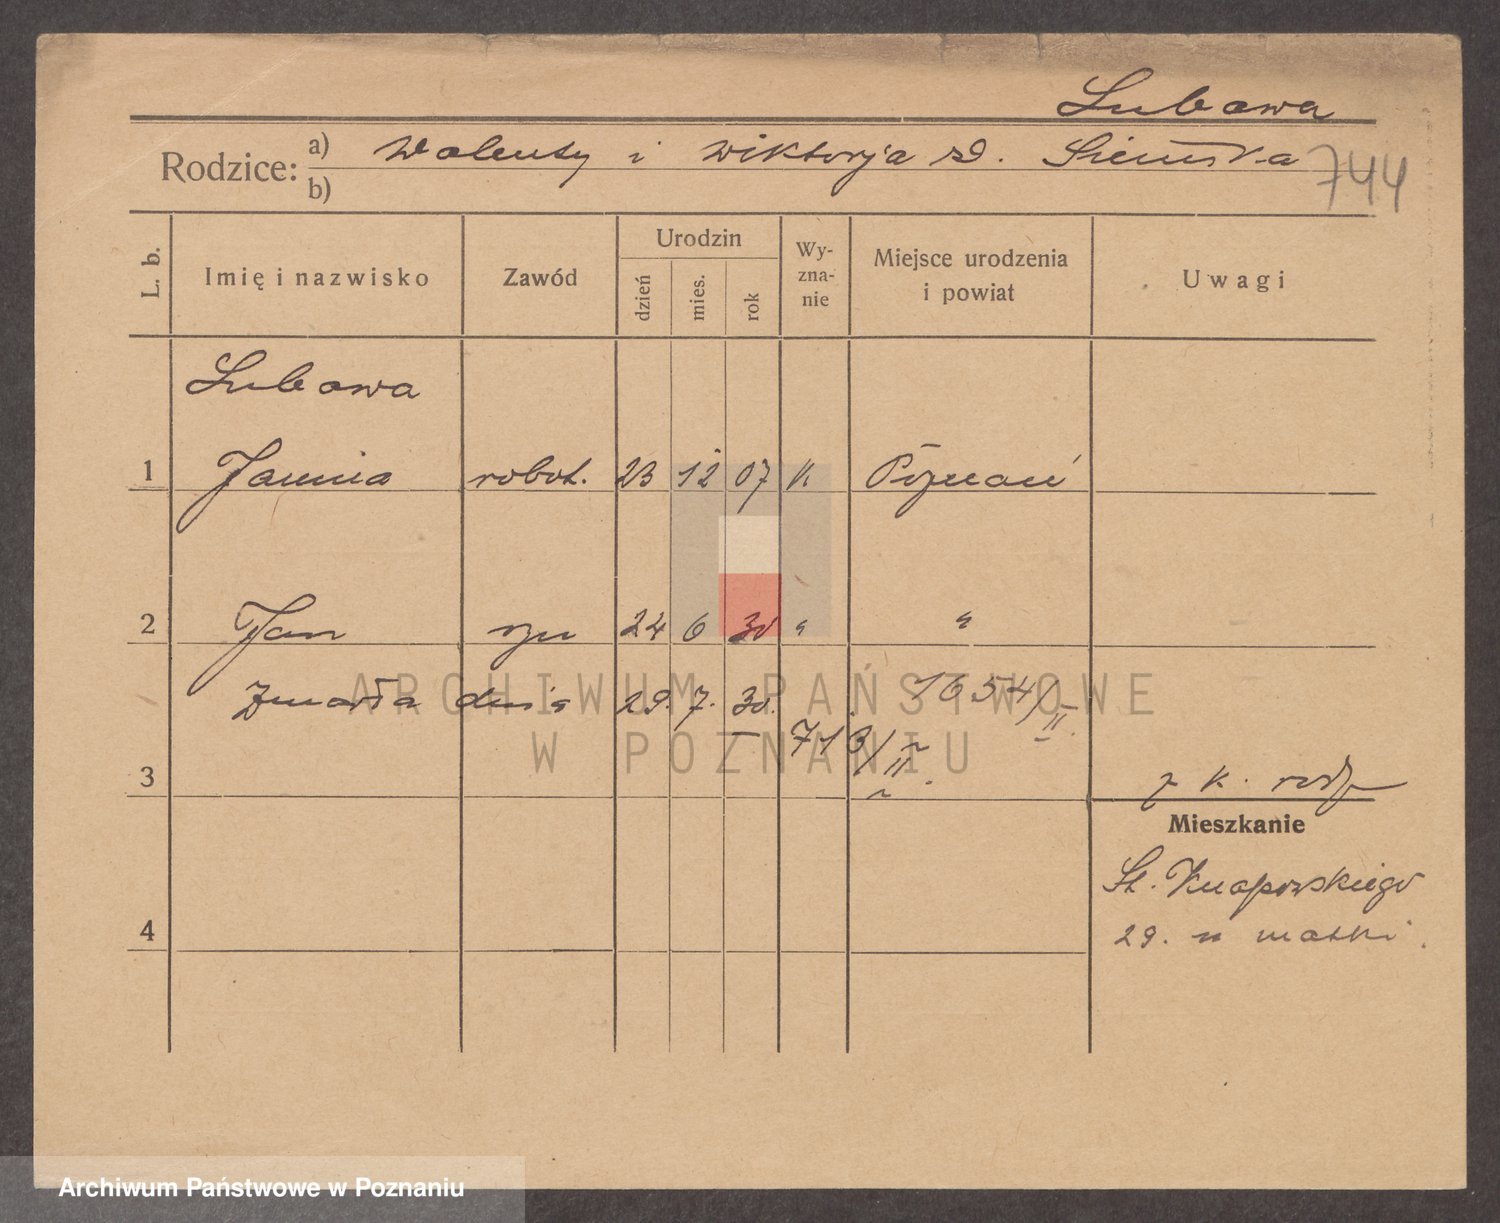 Lubowa
Rodzice: a) Walenty i Wiktorja rd.
b)
744
L. b. Imię i nazwisko Zawód Urodzin dzień mies. rok Wy-zna-nie Miejsce urodzenia i powiat Uwagi
Lubowa
1 Janina robot. 23 12 07 k Poznań
2 Jan syn 24 6 30 " "
Zmarła dnia 29. 7. 30. 1654/II.
713/II.
3 z k. rodz
Mieszkanie
St. Knapowskiego
4 29. u matki.
ARCHIWUM PAŃSTWOWE
W POZNANIU
Archiwum Państwowe w Poznaniu